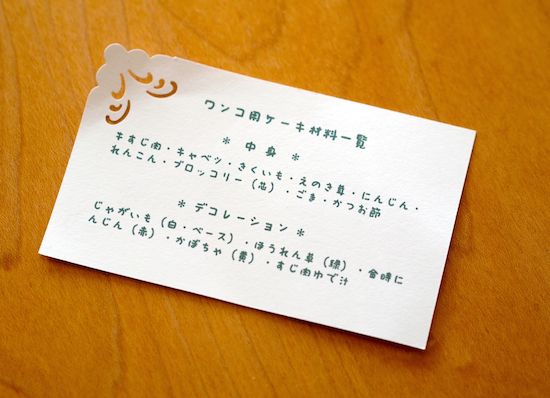 ワンコ用ケーキ材料一覧
＊ 中身 ＊
牛すじ肉・キャベツ・きくいも・えのき茸・にんじん・
れんこん・ブロッコリー（芯）・ごま・かつお節
＊ デコレーション ＊
じゃがいも（白・ベース）・ほうれん草（緑）・金時に
んじん（赤）・かぼちゃ（黄）・すじ肉ゆで汁